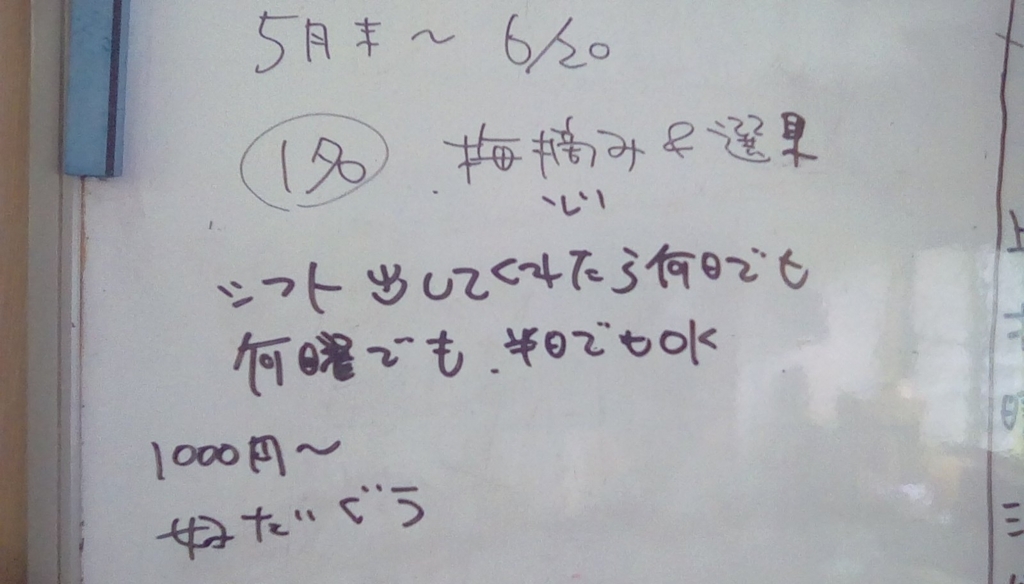 5月末~ 6/20
1名 梅摘み&選果
シフト出してくれたら何日でも
何曜でも、半日でもOK
1000円~